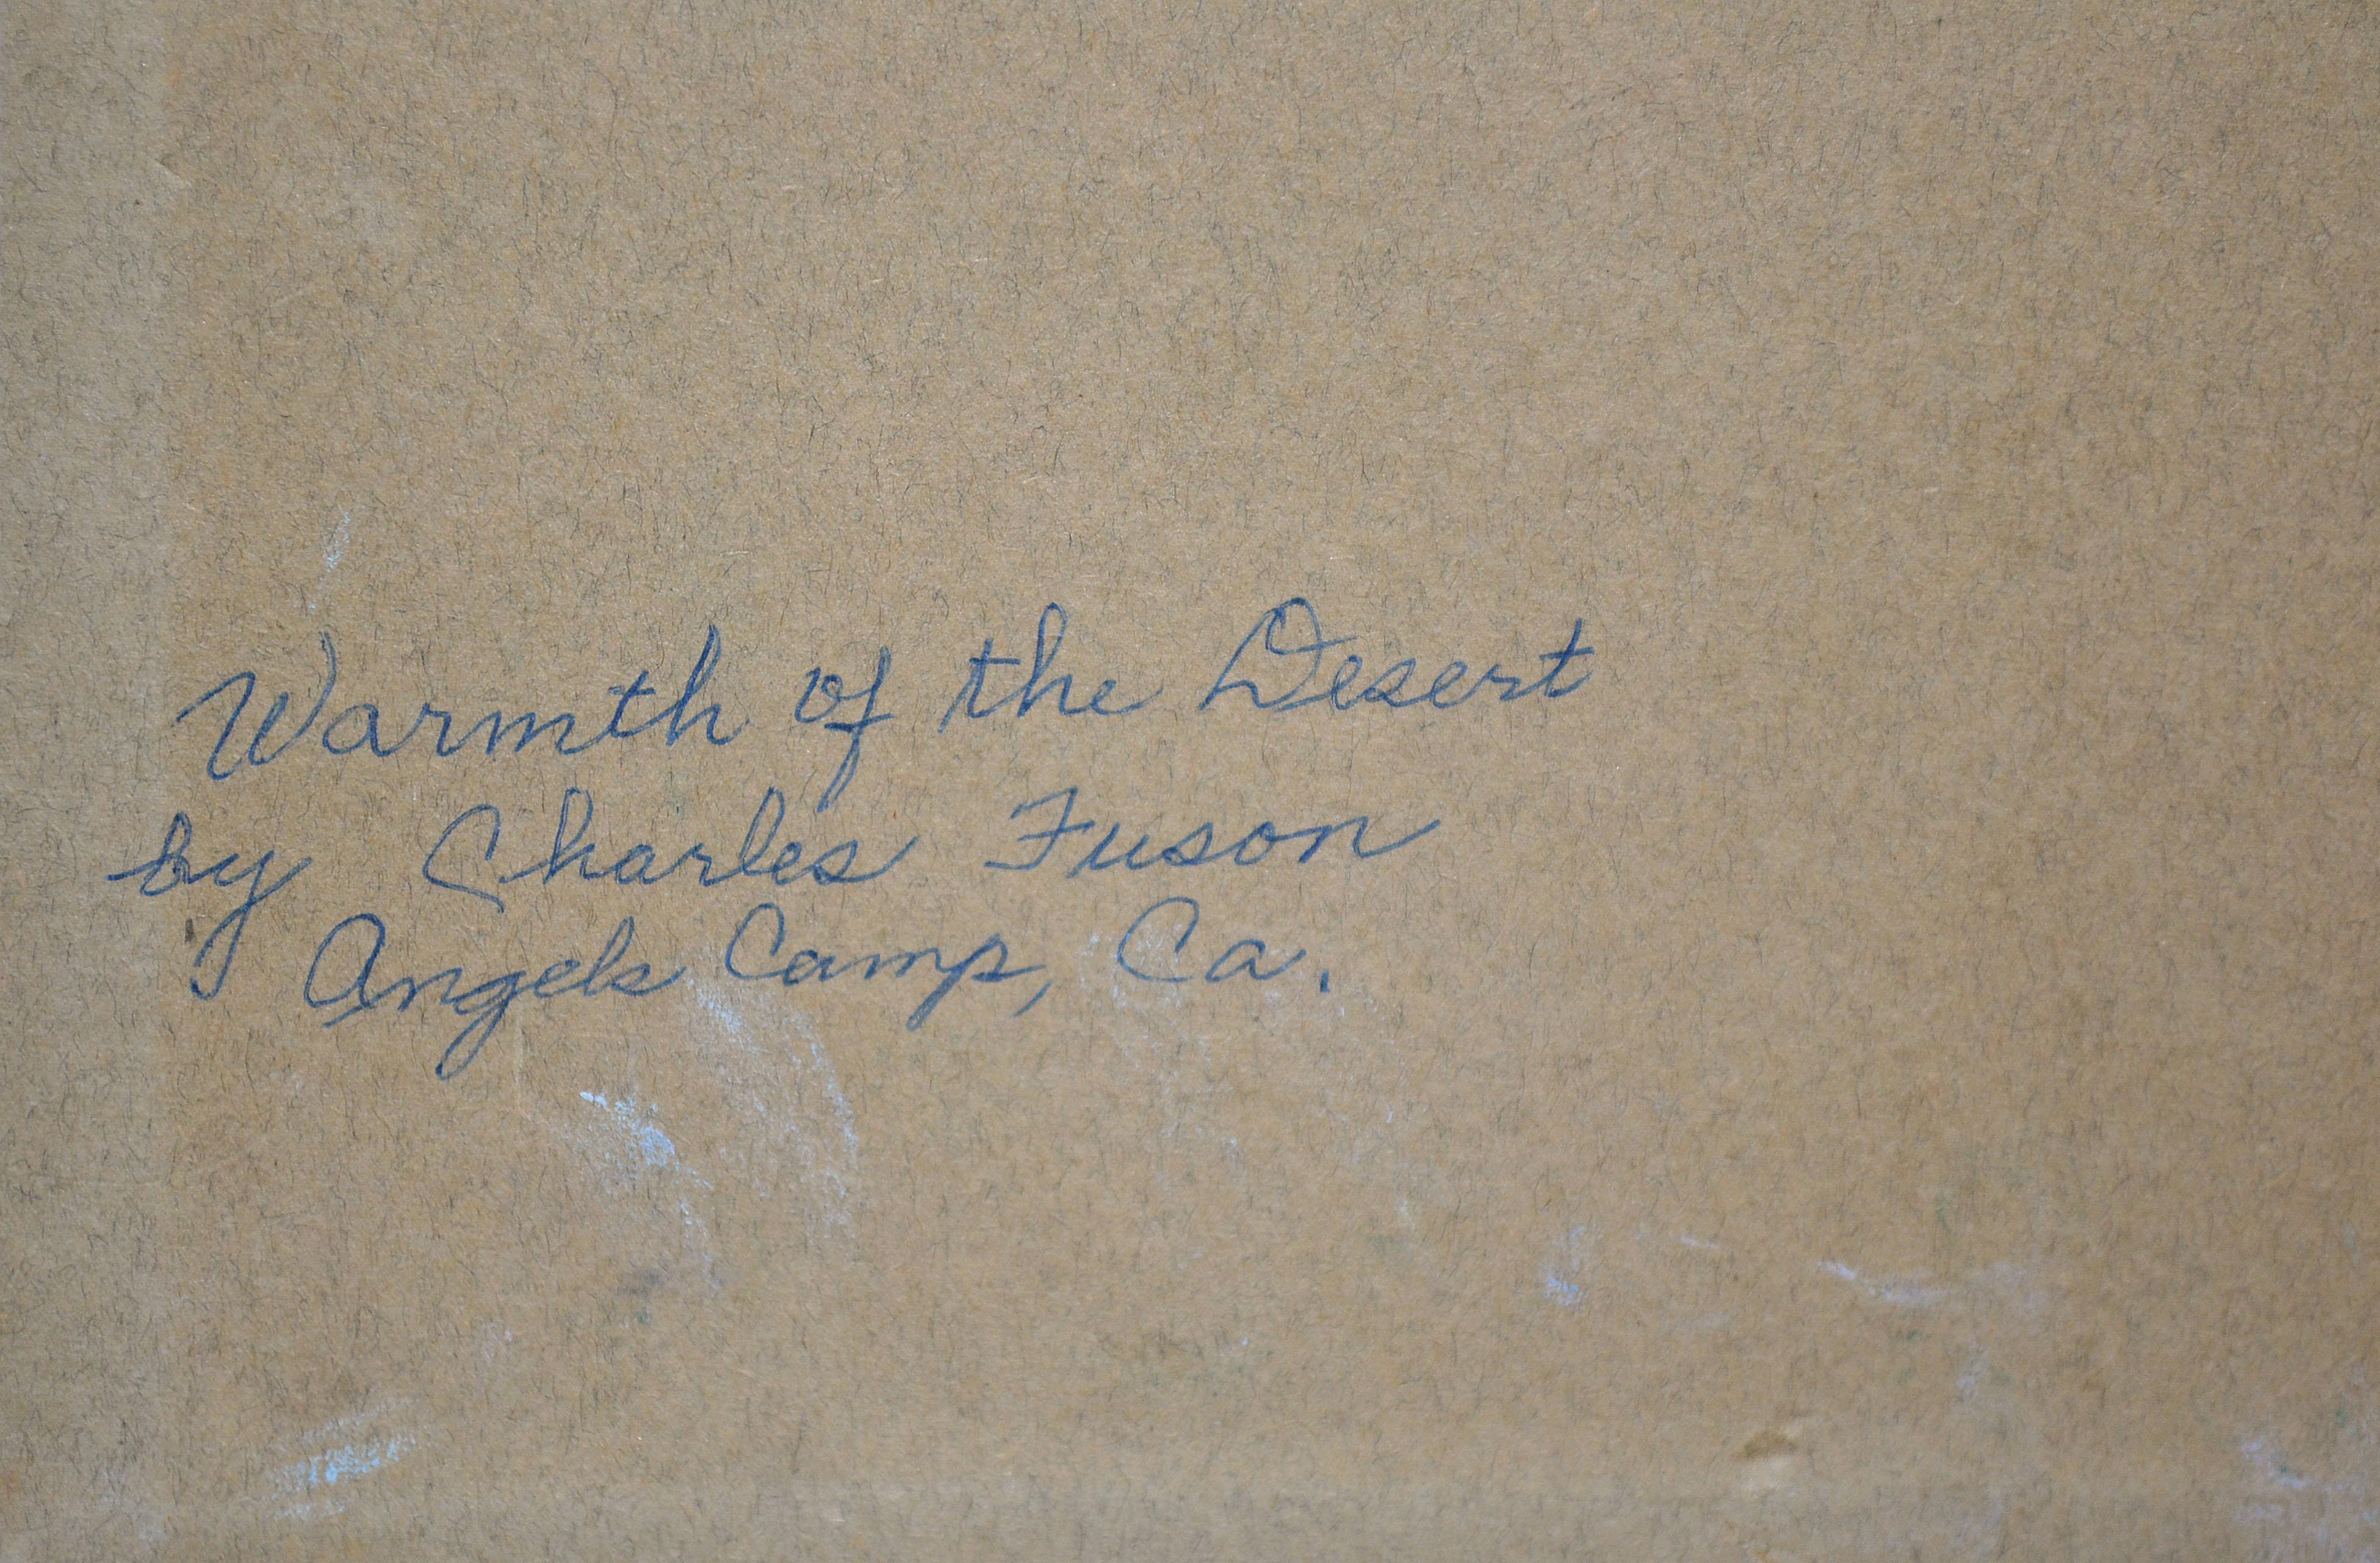 Warmth of the Desert
by Charles Fuson
Angels Camp, Ca.